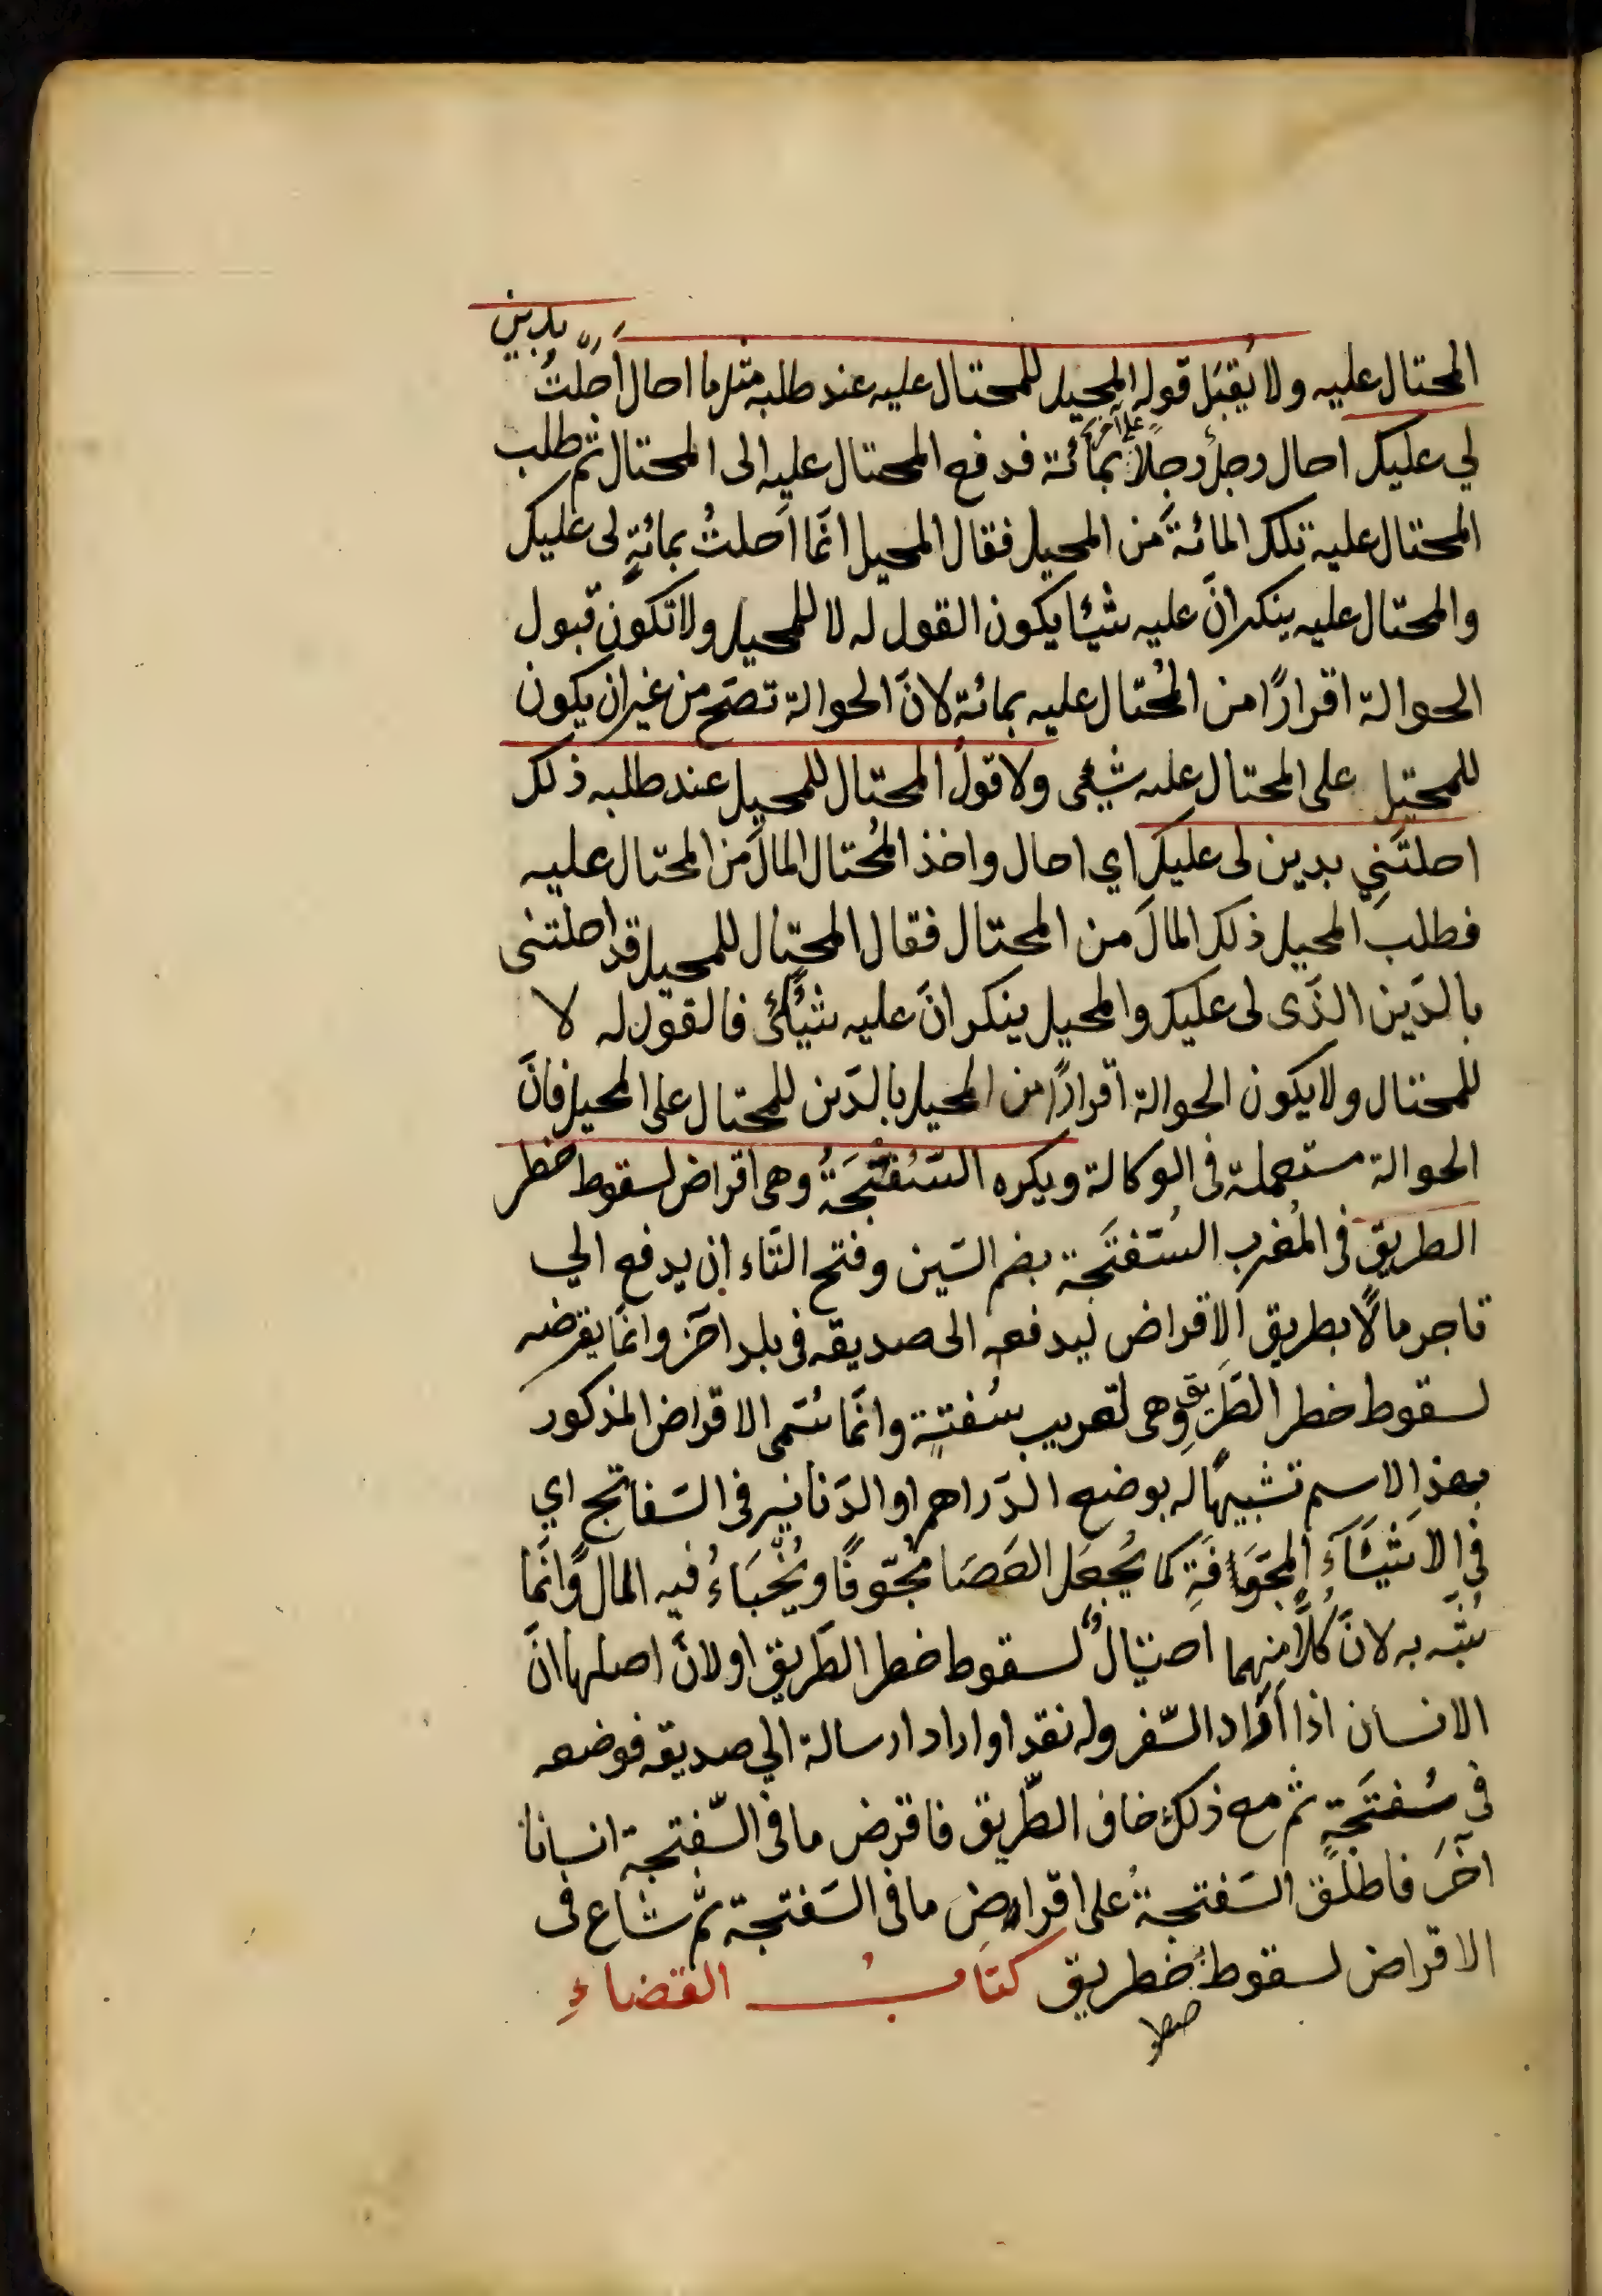 المحتال عليه ولا يُقبَل قوله المحيل للمحتال عليه عند طلبه مثل ما احال أحلتُ بدين
لي عليك احال رجلٌ رجلًا على آخر بمائة فدفع المحتال عليه الى المحتال ثم طلب
المحتال عليه تلك المائةَ من المحيل فقال المحيل انّما اَحلتُ بمائةٍ لى عليك
والمحتال عليه ينكر انّ عليه شيئا يكون القول له لا للمحيل ولا تكون قبول
الحوالة اقرارًا من المُحتال عليه بمائة لانّ الحوالة تصحّ من غير ان يكون
للمحيل على المحتال عليه شيئى ولا قولُ المحتال للمحيل عند طلبه ذلك
احلتَنِي بدين لى عليك اي احال واخذ المُحتال المالَ من المحتال عليه
فطلب المحيل ذلك المالَ من المحتال فقال المحتال للمحيل قد احلتنى
بالدَين الذّى لى عليك والمحيل ينكر انّ عليه شيئًا فالقول له لا
للمحتال ولا يكون الحوالة اقرارًا من المحيل بالدَين للمحتال على المحيل فانّ
الحوالة مستعملة فى الوكالة ويكره السُفْتَجَةُ وهى اقراض لسقوط خطر
الطريق فى المُغرب السُفتَجة بضم السّين وفتح التّاء ان يدفع الي
تاجر مالًا بطريق الاقراض ليدفعه الى صديقه فى بلد آخر وانّما يقرضه
لسقوط خطر الطّريق وهى تعريب سُفتةٍ وانّما سُمّى الاقراض المذكور
بهذ الاسم تشبيهًا له بوضع الدّراهم او الدّنانير فى السّفاتج اي
فى الاشيَآءِ المجَوّافَةِ كما يُجعَل العَصَا مجَوّفًا ويُخْبَاءُ فيه المال وانّما
شُبّه به لانّ كُلًّا منهما احتيالٌ لسقوط خطر الطّريق او لانّ اصلها انّ
الانسان اذا اراد السّفر وله نقد او اراد ارسالة الي صديقه فوضعه
فى سُفتَجَةٍ ثم مع ذلك خاف الطّريق فاقرض ما فى السّفتجة انسانا
آخَرَ فاطلق السّفتجةُ على اقراض ما فى السّفتجة ثمّ شاع فى
الاقراض لسقوط خطريق كتَابُ القضاءِ